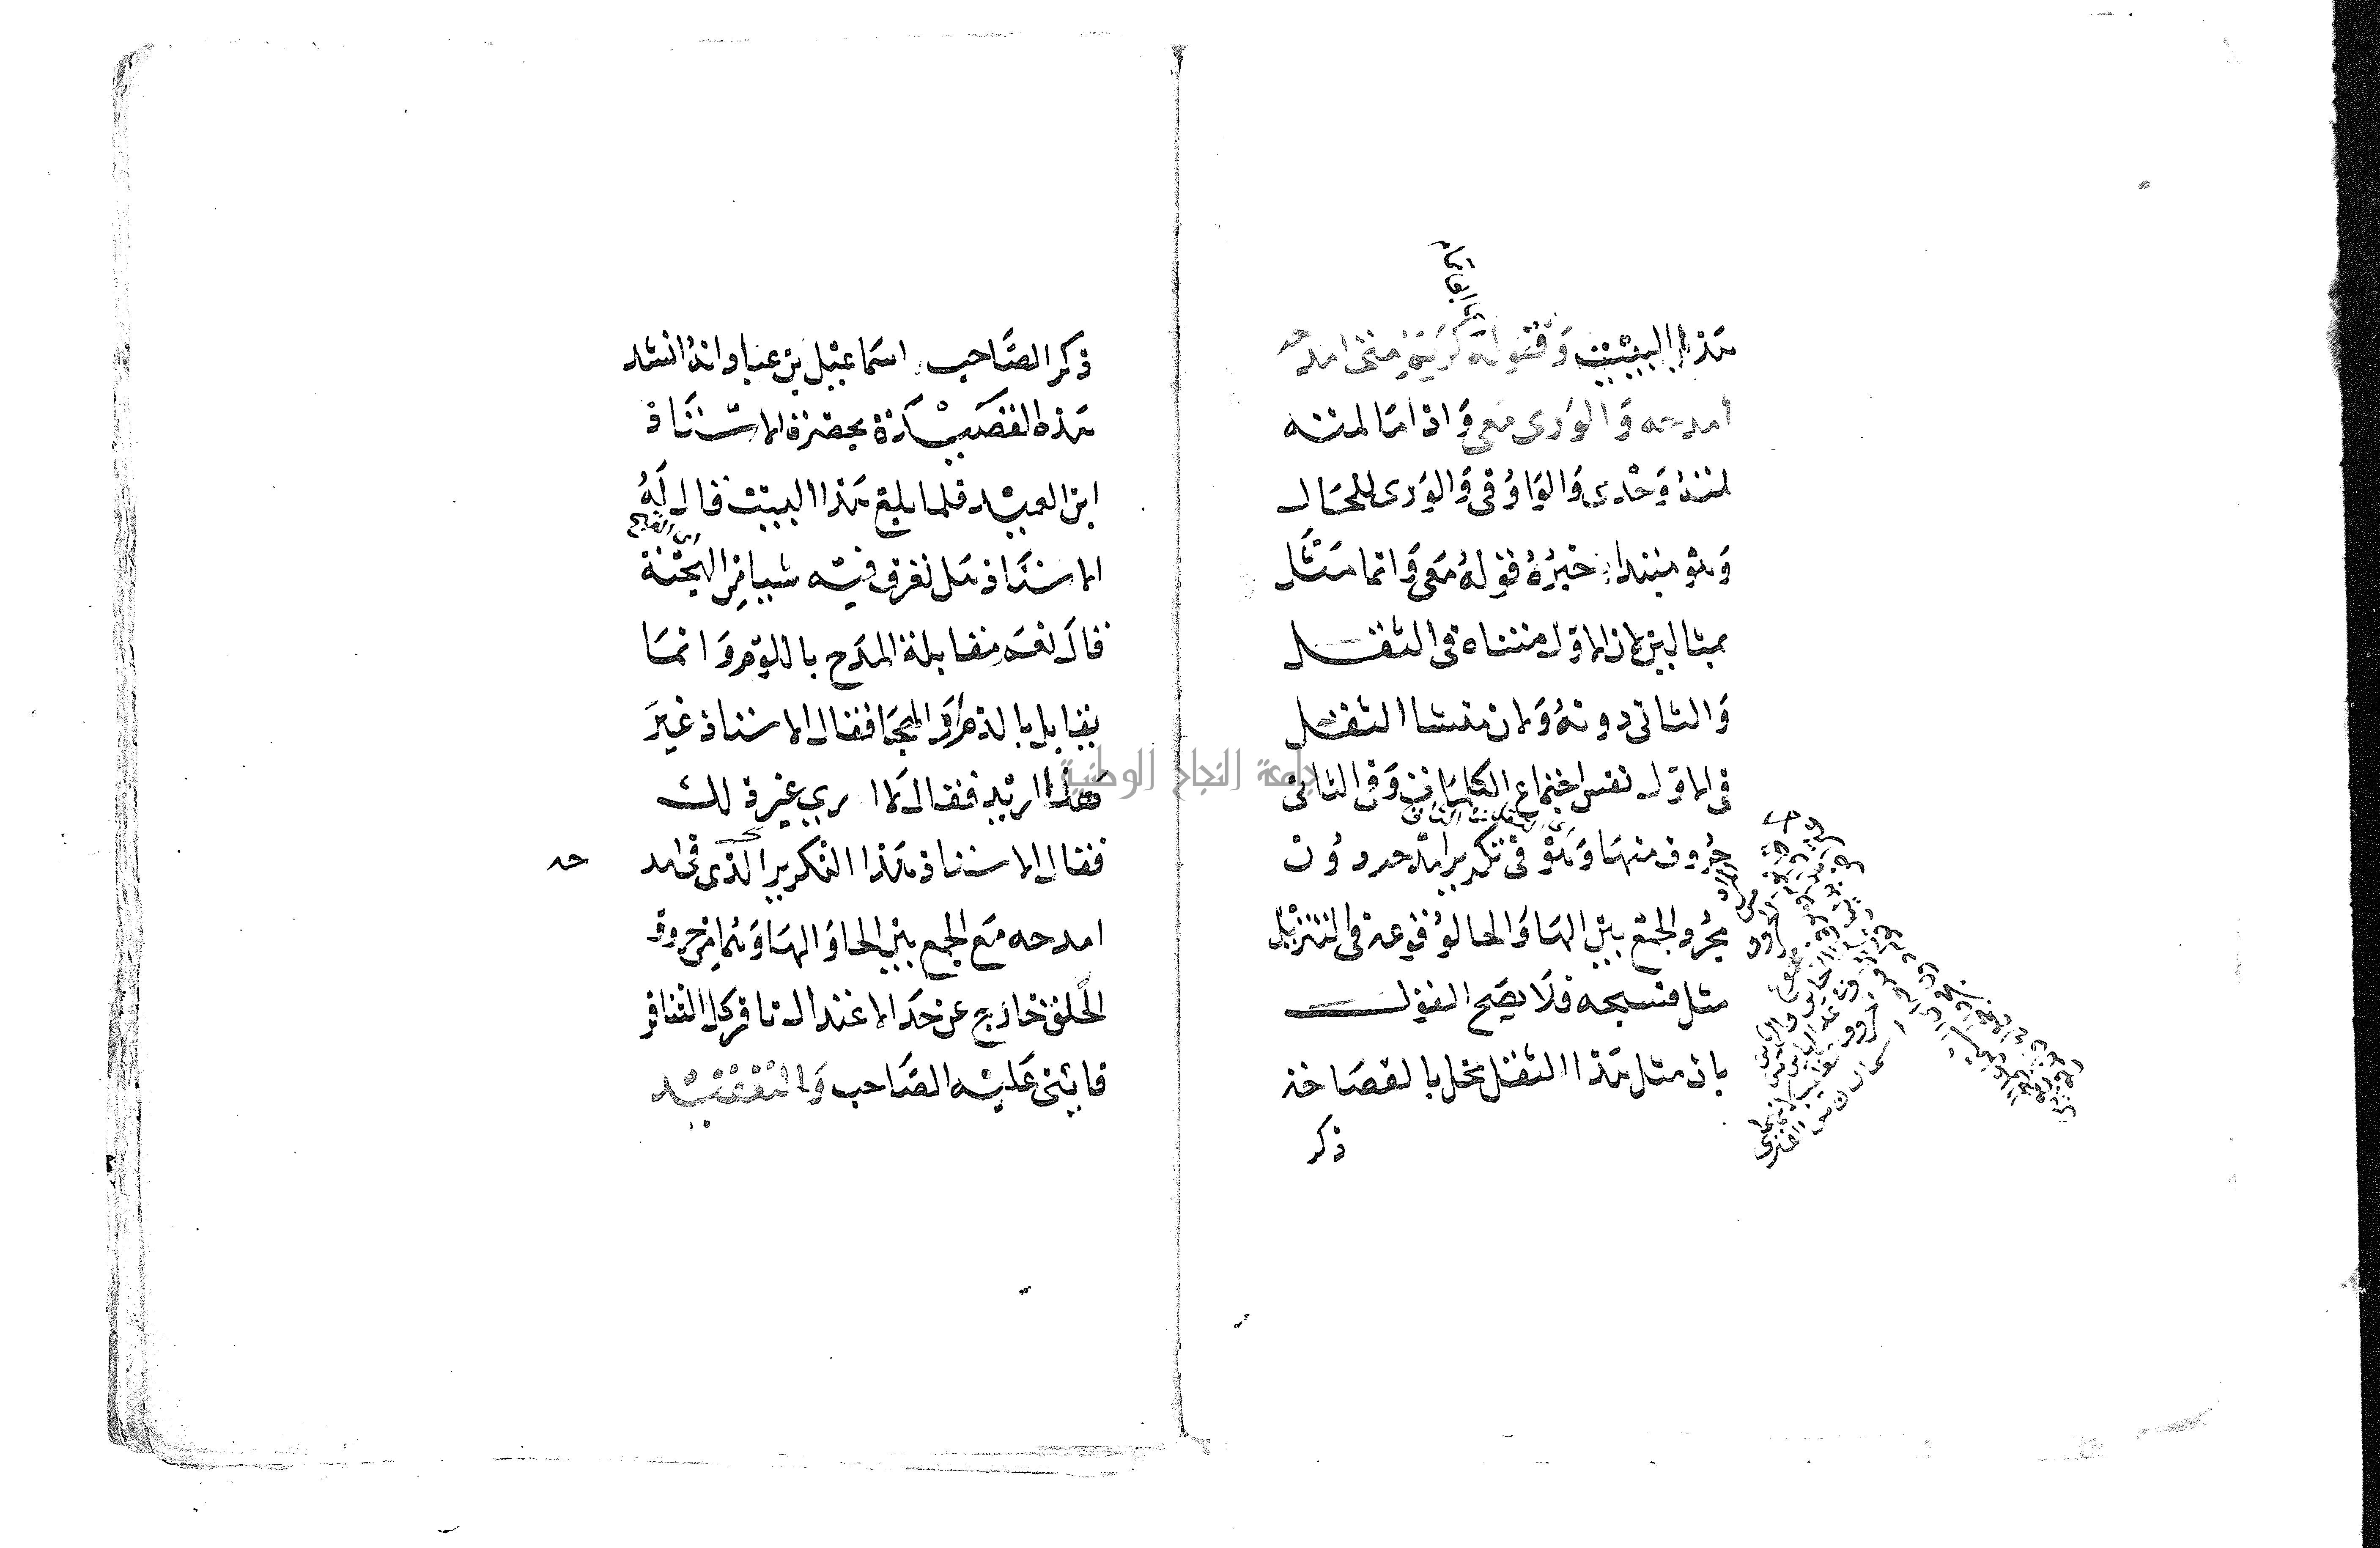 هذا البيت وقوله كريم متى امدحه
أمدحه والورى معى واذا ما لمته
لمته وحدى والواو فى والورى للحال
وهو مبتدا خبره قوله معى وانما مثل
بمثالين لان الاول متناه فى الثقل
والثانى دونه ولان منشا الثقل
فى الاول نفس اجتماع الكلمات وفى الثانى
حروف منها وهو فى تكرير امدحه دون
مجرد الجمع بين الها والحا لوقوعه فى التنزيل
مثل فسبحه فلا يصح القول
بان مثل هذا الثقل مخل بالفصاحة
ذكر
ذكر الصاحب اسماعيل بن عباد انه انشد
هذه القصيدة بحضرة الاستاذ
ابن العميد فلما بلغ هذا البيت قال له
الاستاذ هل تعرف فيه شيا من الهجنة
اى القبح
قال نعم مقابلة المدح باللوم وانما
يقابل بالذم او الهجا فقال الاستاذ غير
هذا اريد فقال لا ادرى غير ذلك
فقال الاستاذ هذا التكرير الذى فى امد
حه
امدحه مع الجمع بين الحا والها وهما من حروف
الحلق خارج عن حد الاعتدال نافر كل التنافر
فاثنى عليه الصاحب والتعقيد
جامعة النجاح الوطنية